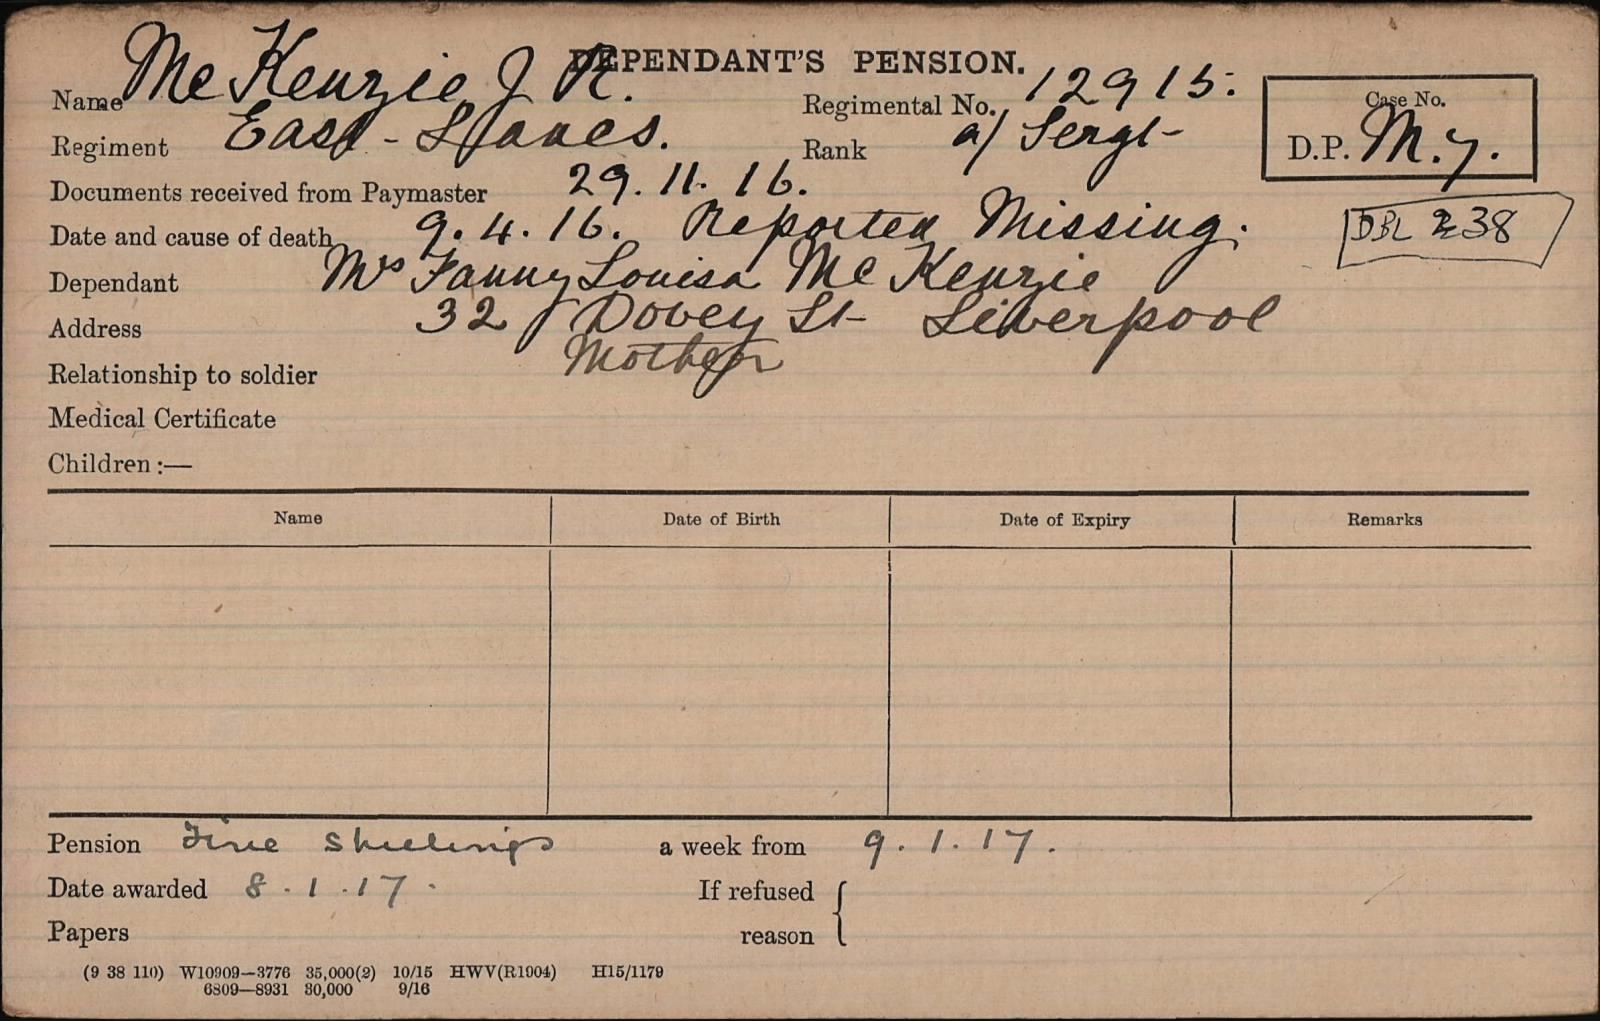 DEPENDANT'S PENSION.
Name McKenzie J R.
Regimental No. 12915.
Case No.
D.P. M.7.
Regiment East-Lancs.
Rank a/ Sergt
Documents received from Paymaster 29.11.16.
DBL 238
Date and cause of death 9.4.16. Reported Missing.
Dependant Mrs Fanny Louisa McKenzie
Address 32 Dovey St Liverpool
Relationship to soldier Mother
Medical Certificate
Children:—
Name Date of Birth Date of Expiry Remarks
Pension Five Shillings a week from 9.1.17.
Date awarded 8.1.17.
If refused reason
Papers
(9 38 110) W10909—3776 35,000(2) 10/15 HWV(R1904) H15/1179
6809—8931 30,000 9/16